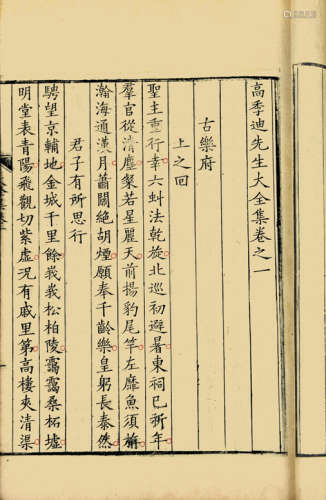 高季迪先生大全集卷之一
古樂府
上之回
聖主重行幸六虯法乾旋北巡初避暑東祠已祈年
羣官從清塵粲若星麗天前揚豹尾竿左靡魚須旃
瀚海通漢月蕭關絶胡煙願奉千齡樂皇躬長泰然
君子有所思行
騁望京輔地金城千里餘峩峩松柏陵靄靄桑柘墟
明堂表青陽飛觀切紫虛况有戚里第高樓夾清渠